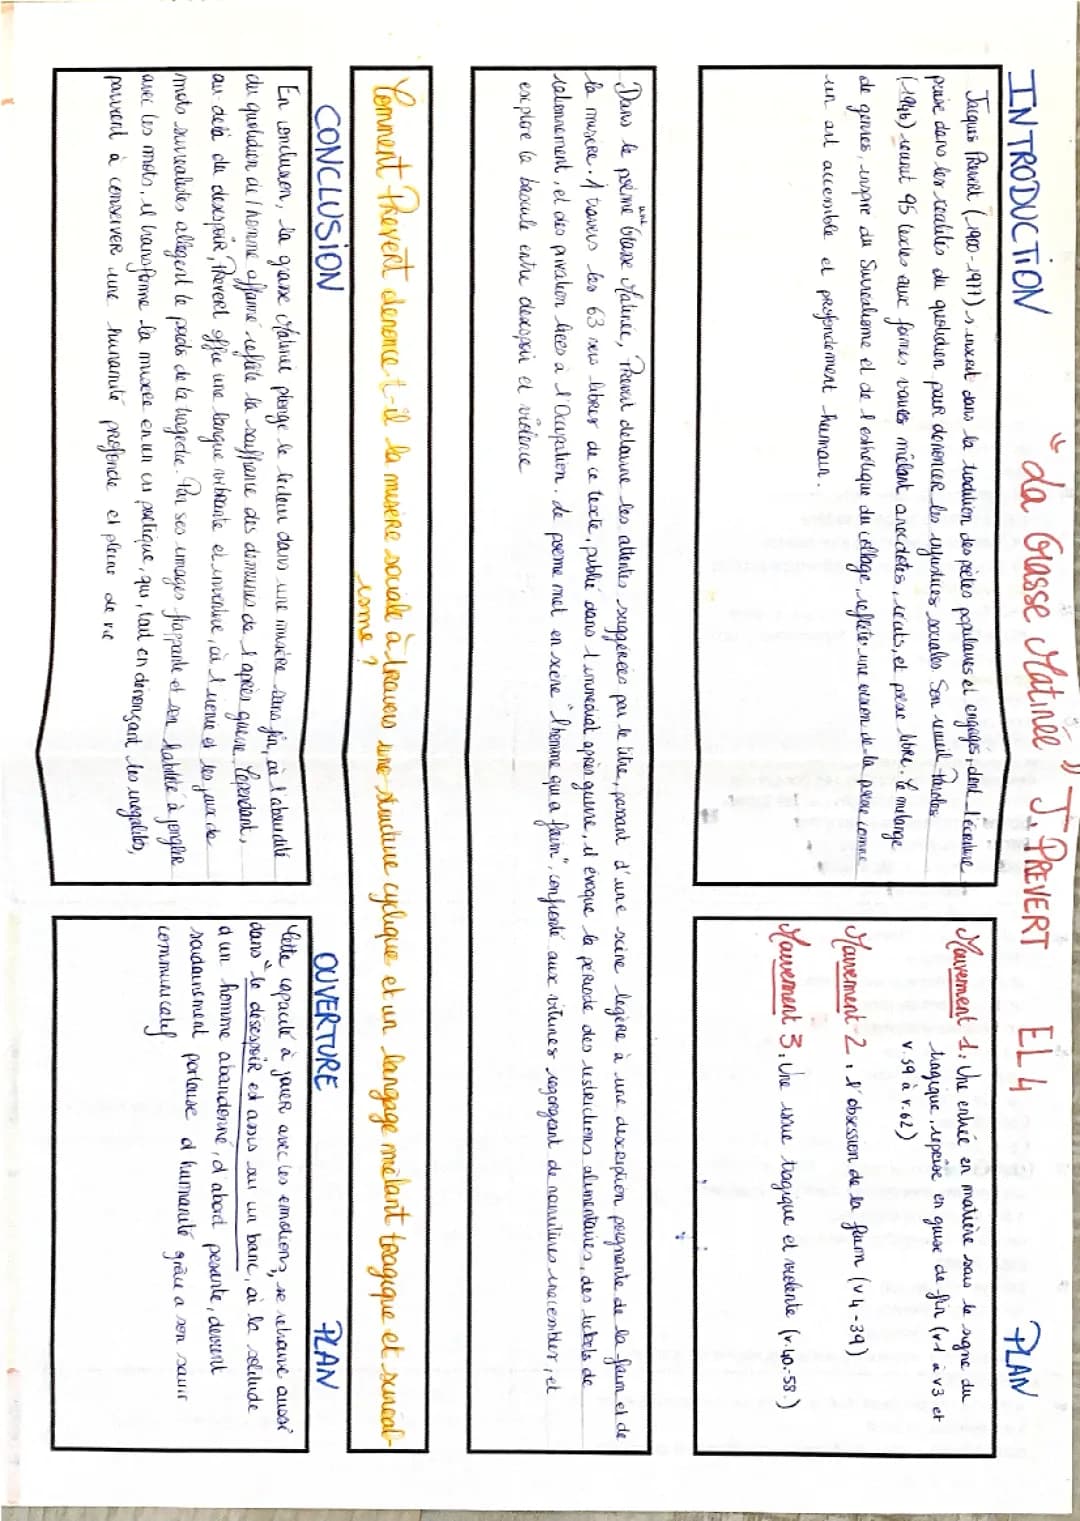 "La Grasse Matinée" J. PREVERT EL 4
INTRODUCTION
Jacques Prévert (1900-1977) s'inscrit dans la tradition des poètes populaires et engagés, dont l'écriture
puise dans les réalités du quotidien pour dénoncer les injustices sociales. Son recueil Paroles
(1946) réunit 95 textes aux formes variées mêlant anecdotes, récits, et prose libre. Ce mélange
de genres, inspiré du Surréalisme et de l'esthétique du collage, reflète une vision de la poésie comme
un art accessible et profondément humain.
PLAN
Mouvement 1: Une entrée en matière sous le signe du
tragique, reprise en guise de fin (v.1 à v3 et
v.59 à v.62)
Mouvement 2: l'obsession de la faim (v4-39)
Mouvement 3: Une issue tragique et violente (v.40-58.)
Dans le poème "La Grasse Matinée, Prévert détourne les attentes suggérées par le titre, passant d'une scène légère à une description poignante de la faim et de
la misère. A travers les 63 vers libres de ce texte, publié dans l'immédiat après guerre, il évoque la période des restrictions alimentaires, des tickets de
rationnement, et des privation liées à l'Occupation. Le poème met en scène "l'homme qui a faim", confronté aux vitrines regorgeant de nourritures inaccessibles, et
explore la bascule entre désespoir et violence
Comment Prévert dénonce-t-il la misère sociale à travers une structure cyclique et un langage mêlant tragique et surréal-
isme?
CONCLUSION
En conclusion, la grasse Matinée plonge le lecteur dans une misère sans fin, où l'absurdité
du quotidien de l'homme affamé reflète la souffrance des démunis de l'après guerre. Cependant,
au-delà du désespoir, Prévert offre une langue vibrante et inventive, où l'ironie et les jeux de
mots surréalistes allègent le poids de la tragédie. Par ses images frappante et son habilité à jongler
avec les mots, il transforme la misère en un cri poétique, qui, tout en dénonçant les inégalités,
parvient à conserver une humanité profonde et pleine de vie
OUVERTURE PLAN
Cette capacité à jouer avec les émotions, se retrouve aussi
dans "le désespoir est assis sur un banc, où la solitude
d'un homme abandonné, d'abord pesante, devient
soudainement porteuse d'humanité grâce a son
communicatif